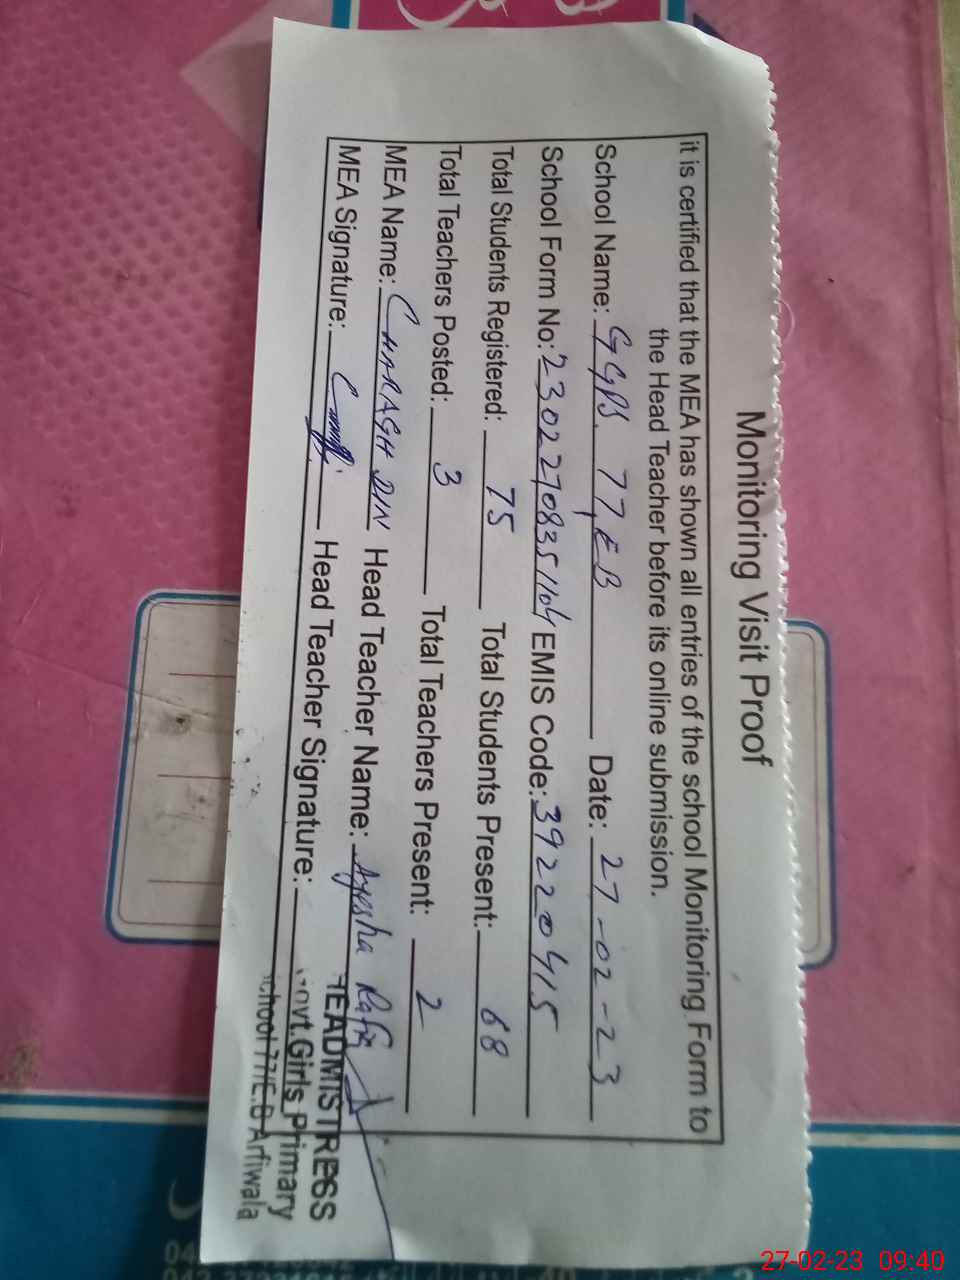 Monitoring Visit Proof
it is certified that the MEA has shown all entries of the school Monitoring Form to
the Head Teacher before its online submission.
School Name: GGPS. 77/EB Date: 27-02-23
School Form No: 23022708351104 EMIS Code: 39220415
Total Students Registered: 75 Total Students Present: 68
Total Teachers Posted: 3 Total Teachers Present: 2
MEA Name: CHARAGH DIN Head Teacher Name: Ayesha Rafiq
MEA Signature: Head Teacher Signature:
HEADMISTRESS
Govt. Girls Primary
School 77/E.B Arfiwala
27-02-23 09:40